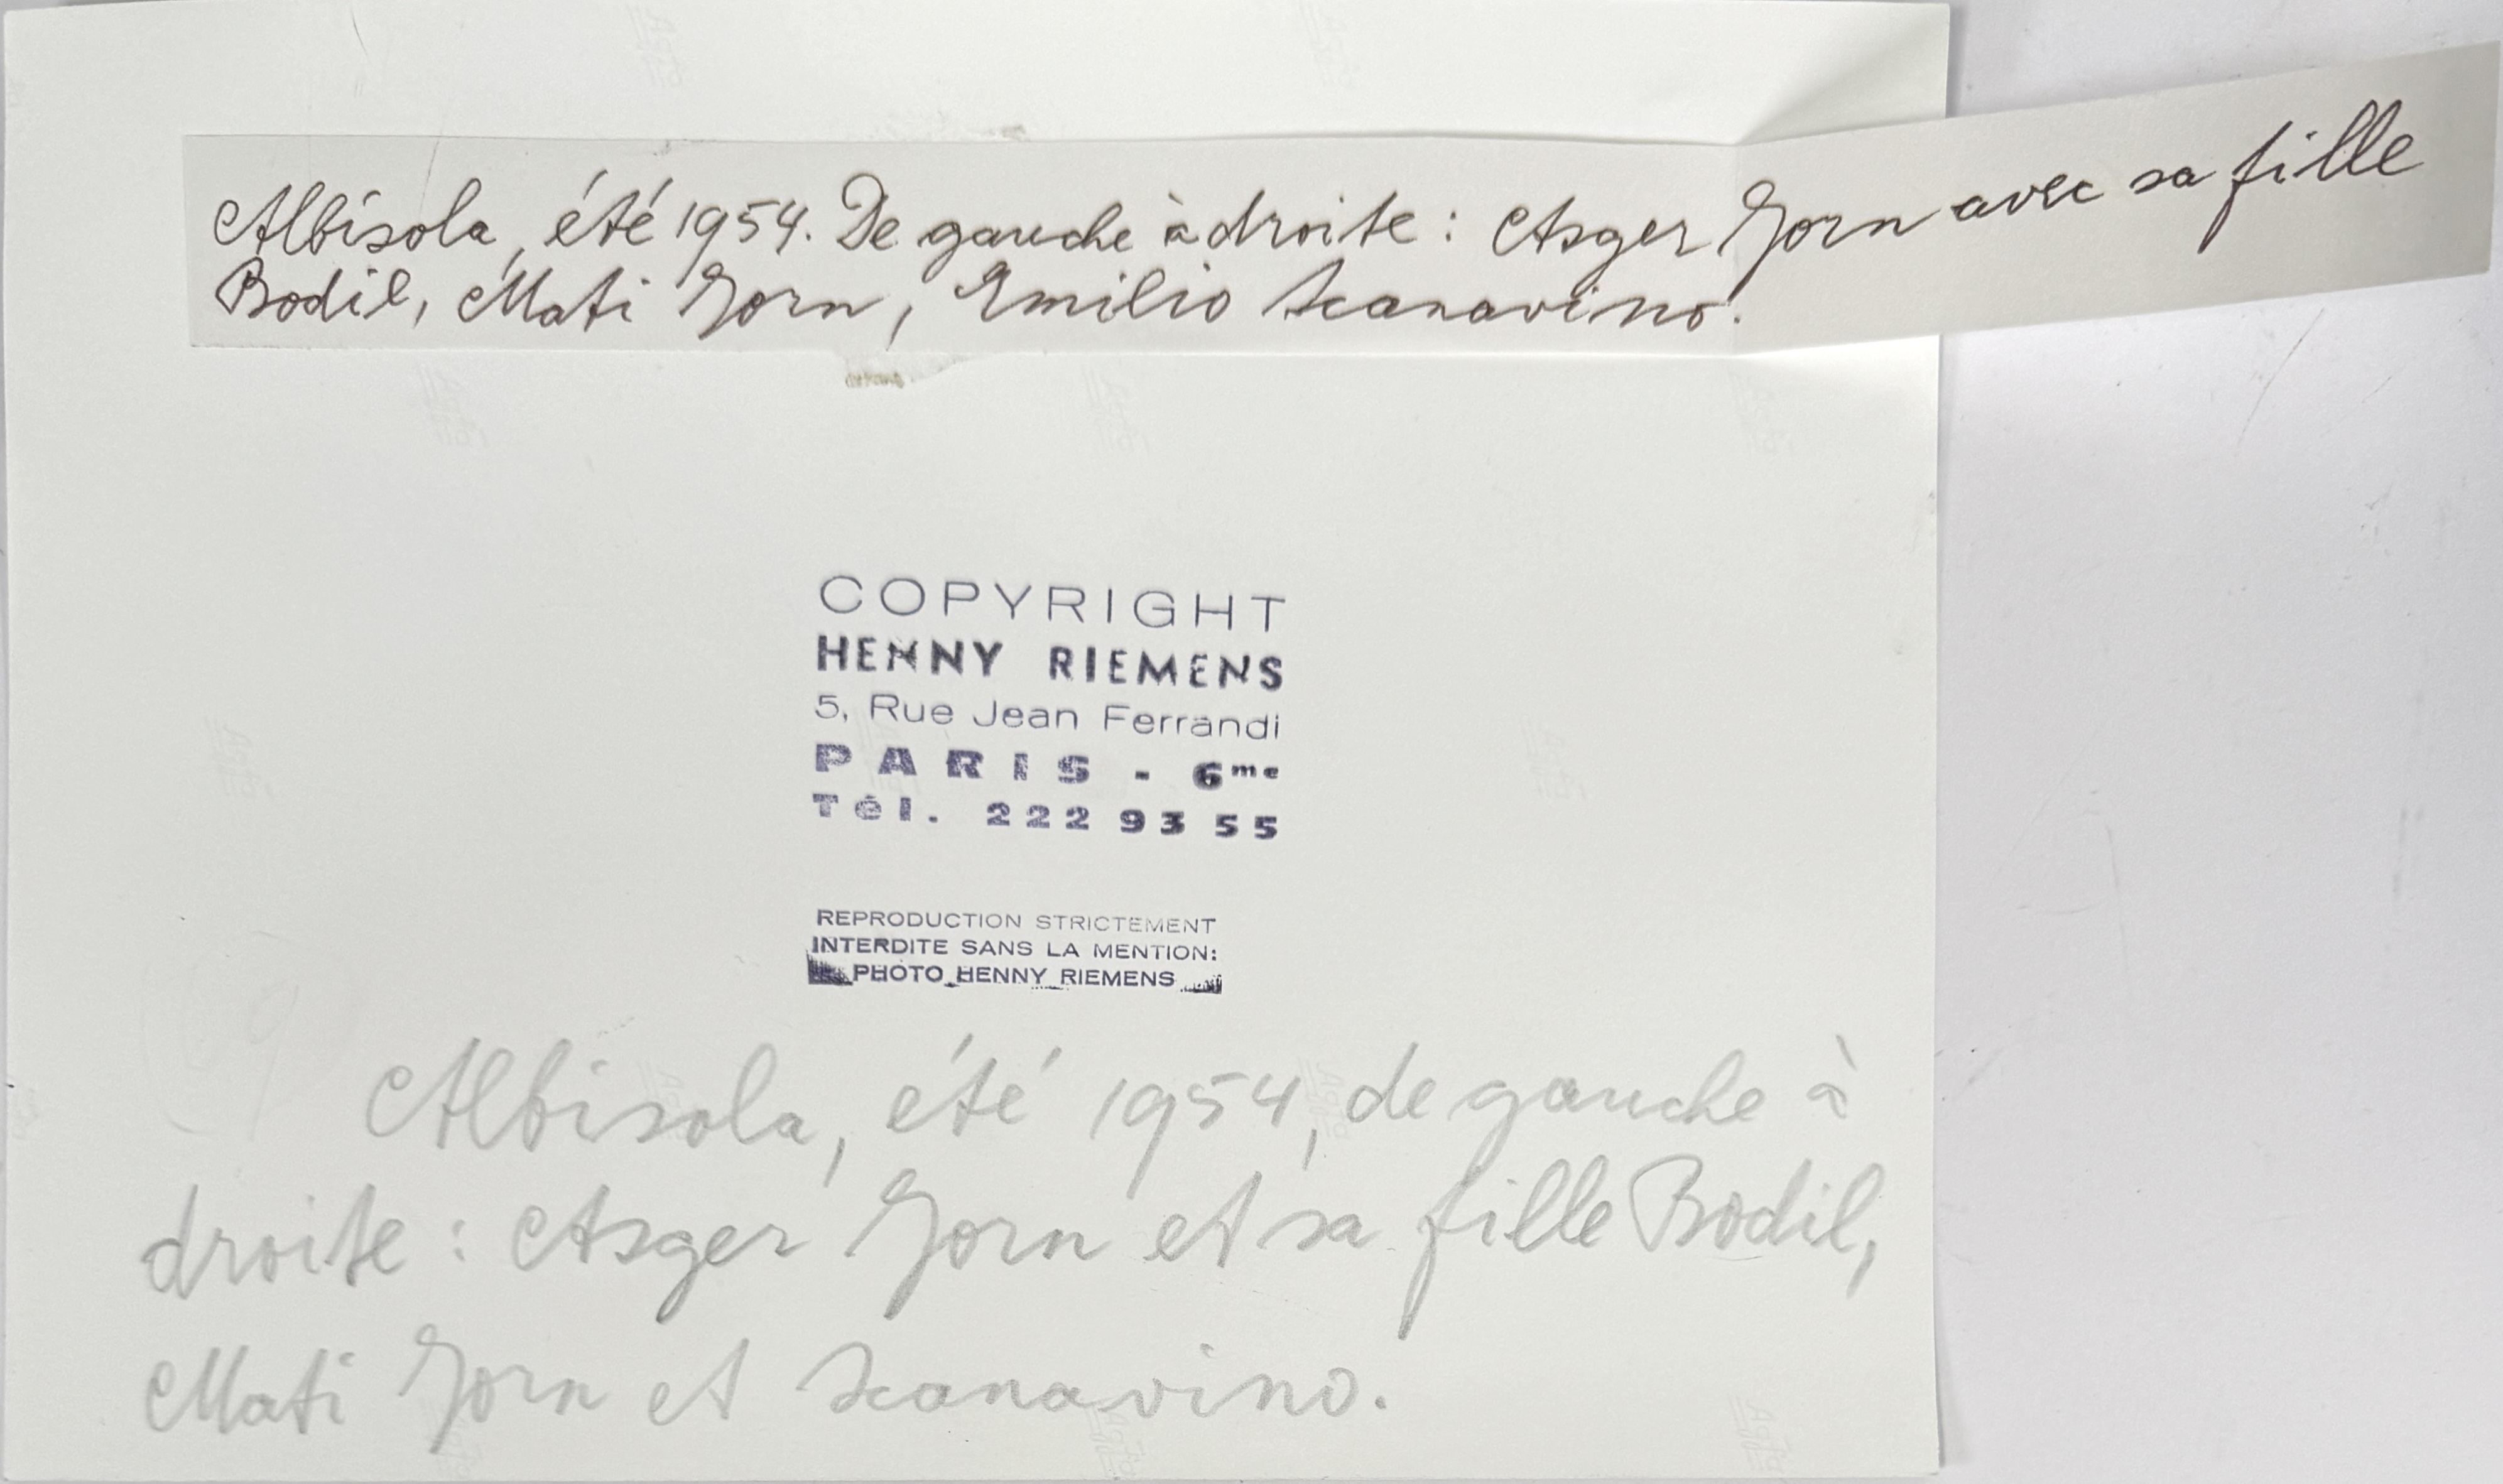 Albisola, été 1954. De gauche à droite : Asger Jorn avec sa fille
Bodil, Mati Jorn, Emilio Scanavino.
COPYRIGHT
HENNY RIEMENS
5, Rue Jean Ferrandi
PARIS - 6me
Tél. 222 93 55
REPRODUCTION STRICTEMENT
INTERDITE SANS LA MENTION:
PHOTO HENNY RIEMENS
Albisola, été 1954, de gauche à
droite : Asger Jorn et sa fille Bodil,
Mati Jorn et Scanavino.